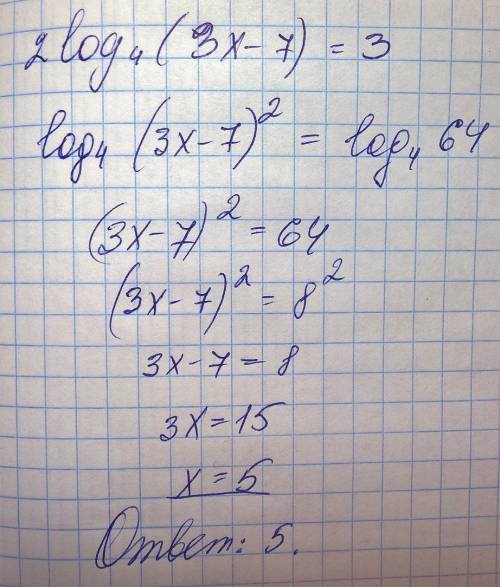 2log₄(3x-7) = 3
log₄(3x-7)² = log₄64
(3x-7)² = 64
(3x-7)² = 8²
3x-7 = 8
3x = 15
x = 5
Ответ: 5.